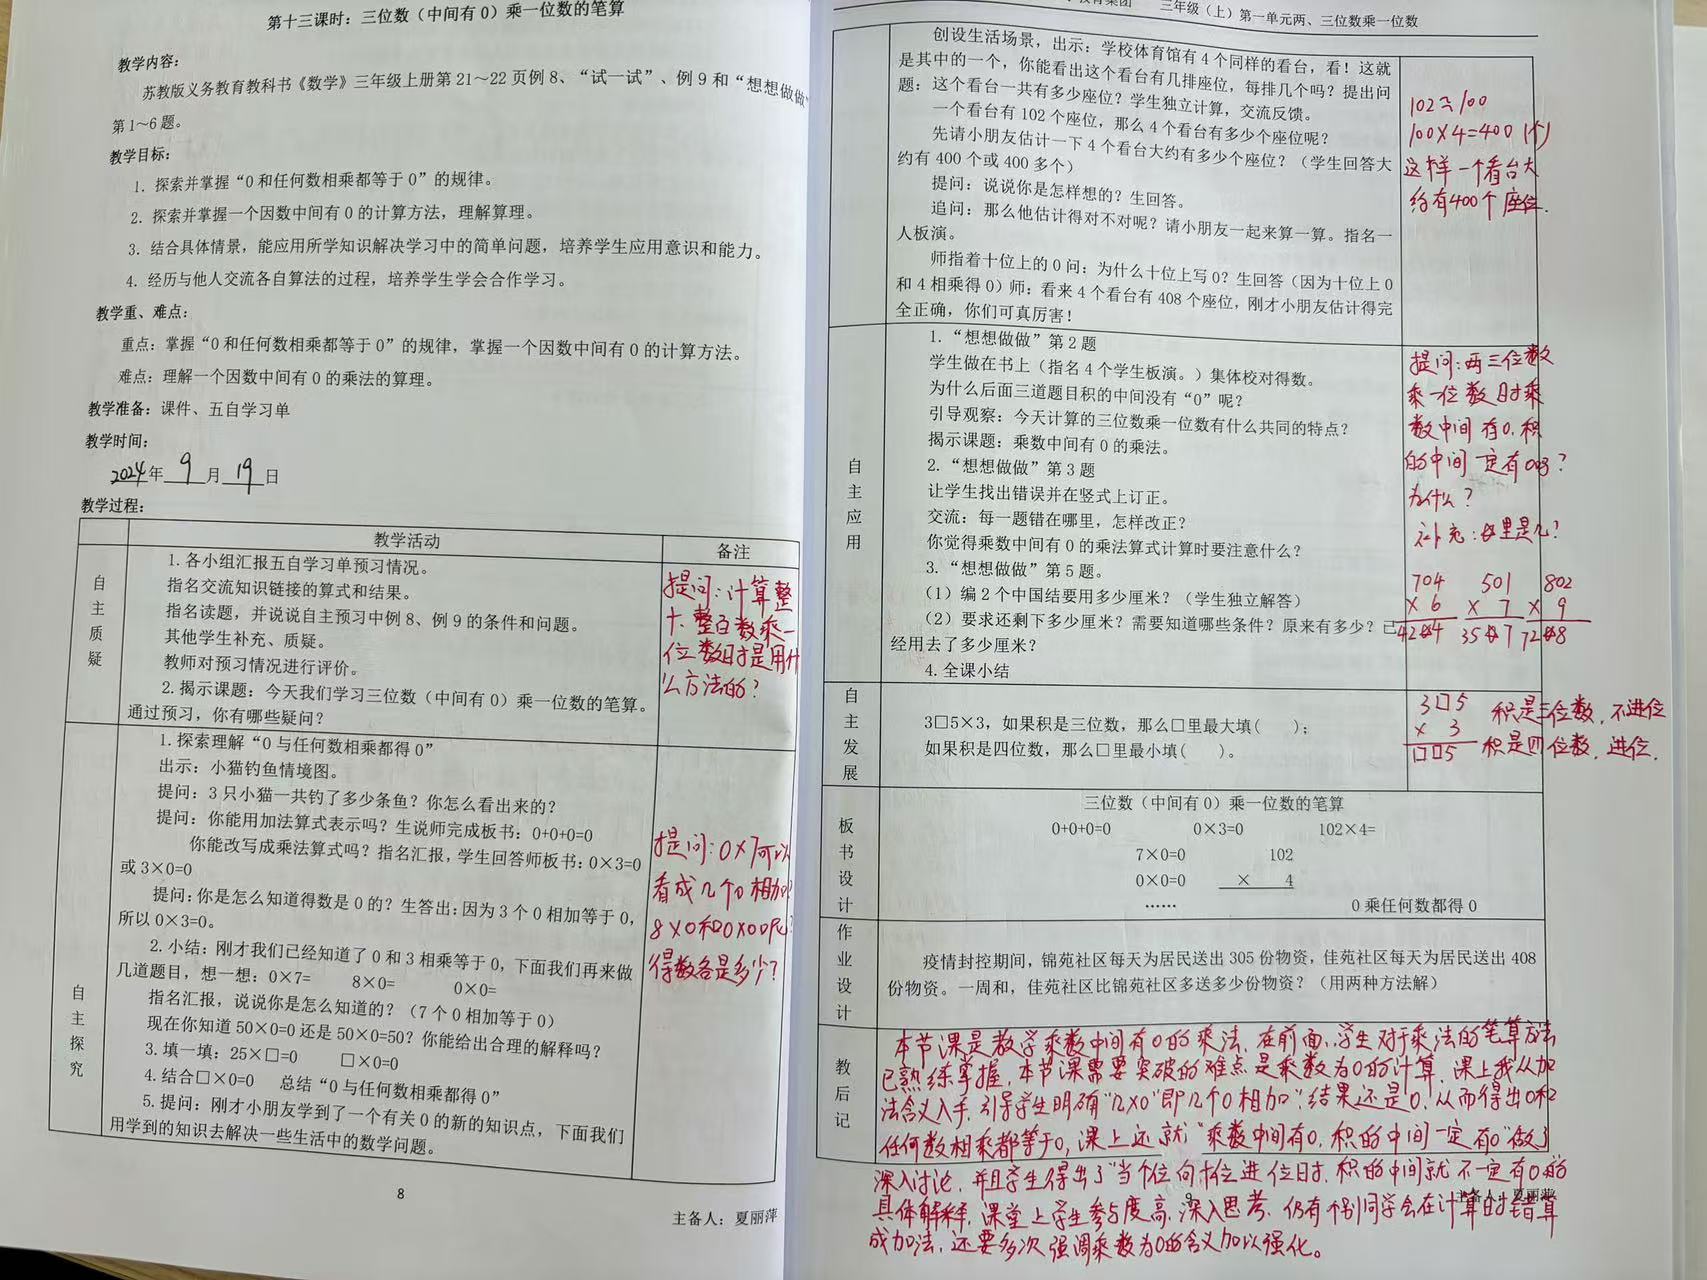 第十三课时：三位数（中间有0）乘一位数的笔算
教学内容：
苏教版义务教育教科书《数学》三年级上册第21～22页例8、“试一试”、例9和“想想做做”
第1～6题。
教学目标：
1. 探索并掌握“0和任何数相乘都等于0”的规律。
2. 探索并掌握一个因数中间有0的计算方法，理解算理。
3. 结合具体情景，能应用所学知识解决学习中的简单问题，培养学生应用意识和能力。
4. 经历与他人交流各自算法的过程，培养学生学会合作学习。
教学重、难点：
重点：掌握“0和任何数相乘都等于0”的规律，掌握一个因数中间有0的计算方法。
难点：理解一个因数中间有0的乘法的算理。
教学准备：课件、五自学习单
教学时间：
2024年 9 月 19 日
教学过程：
教学活动
备注
自主质疑
1.各小组汇报五自学习单预习情况。
指名交流知识链接的算式和结果。
指名读题，并说说自主预习中例8、例9的条件和问题。
其他学生补充、质疑。
教师对预习情况进行评价。
2.揭示课题：今天我们学习三位数（中间有0）乘一位数的笔算。
通过预习，你有哪些疑问？
提问：计算整
十、整百数乘一
位数时是用什
么方法的？
自主探究
1.探索理解“0与任何数相乘都得0”
出示：小猫钓鱼情境图。
提问：3只小猫一共钓了多少条鱼？你怎么看出来的？
提问：你能用加法算式表示吗？生说师完成板书：0+0+0=0
你能改写成乘法算式吗？指名汇报，学生回答师板书：0×3=0
或3×0=0
提问：你是怎么知道得数是0的？生答出：因为3个0相加等于0，
所以0×3=0。
2.小结：刚才我们已经知道了0和3相乘等于0，下面我们再来做
几道题目，想一想：0×7= 8×0= 0×0=
指名汇报，说说你是怎么知道的？（7个0相加等于0）
现在你知道50×0=0还是50×0=50？你能给出合理的解释吗？
3.填一填：25×□=0 □×0=0
4.结合□×0=0 总结“0与任何数相乘都得0”
5.提问：刚才小朋友学到了一个有关0的新的知识点，下面我们
用学到的知识去解决一些生活中的数学问题。
提问：0×7可以
看成几个0相加？
8×0和0×0呢？
得数各是多少？
8
主备人：夏丽萍
教育集团 三年级（上）第一单元两、三位数乘一位数
创设生活场景，出示：学校体育馆有4个同样的看台，看！这就
是其中的一个，你能看出这个看台有几排座位，每排几个吗？提出问
题：这个看台一共有多少座位？学生独立计算，交流反馈。
一个看台有102个座位，那么4个看台有多少个座位呢？
先请小朋友估计一下4个看台大约有多少个座位？（学生回答大
约有400个或400多个）
提问：说说你是怎样想的？生回答。
追问：那么他估计得对不对呢？请小朋友一起来算一算。指名一
人板演。
师指着十位上的0问：为什么十位上写0？生回答（因为十位上0
和4相乘得0）师：看来4个看台有408个座位，刚才小朋友估计得完
全正确，你们可真厉害！
102≈100
100×4=400（个）
这样一个看台大
约有400个座位.
自主应用
1.“想想做做”第2题
学生做在书上（指名4个学生板演。）集体校对得数。
为什么后面三道题目积的中间没有“0”呢？
引导观察：今天计算的三位数乘一位数有什么共同的特点？
揭示课题：乘数中间有0的乘法。
2.“想想做做”第3题
让学生找出错误并在竖式上订正。
交流：每一题错在哪里，怎样改正？
你觉得乘数中间有0的乘法算式计算时要注意什么？
3.“想想做做”第5题。
（1）编2个中国结要用多少厘米？（学生独立解答）
（2）要求还剩下多少厘米？需要知道哪些条件？原来有多少？已
经用去了多少厘米？
4.全课小结
提问：两三位数
乘一位数时乘
数中间有0，积
的中间一定有0吗？
为什么？
补充：✿里是几？
704 501 802
× 6 × 7 × 9
42✿4 35✿7 72✿8
自主发展
3□5×3，如果积是三位数，那么□里最大填（ ）；
如果积是四位数，那么□里最小填（ ）。
3□5 积是三位数，不进位
× 3 积是四位数，进位.
□□5
板书设计
三位数（中间有0）乘一位数的笔算
0+0+0=0 0×3=0 102×4=
7×0=0 102
0×0=0 × 4
…… 0乘任何数都得0
作业设计
疫情封控期间，锦苑社区每天为居民送出305份物资，佳苑社区每天为居民送出408
份物资。一周和，佳苑社区比锦苑社区多送多少份物资？（用两种方法解）
教后记
本节课是教学乘数中间有0的乘法，在前面，学生对于乘法的笔算方法
已熟练掌握，本节课需要突破的难点是乘数为0的计算，课上我从加
法含义入手，引导学生明确“几×0”即几个0相加，结果还是0，从而得出0和
任何数相乘都等于0，课上还就“乘数中间有0，积的中间一定有0”做了
深入讨论，并且学生得出了当个位向十位进位时，积的中间就不一定有0的
具体解释，课堂上学生参与度高，深入思考，仍有个别同学会在计算时错算
成加法，还要多次强调乘数为0的含义加以强化。
9
主备人：夏丽萍